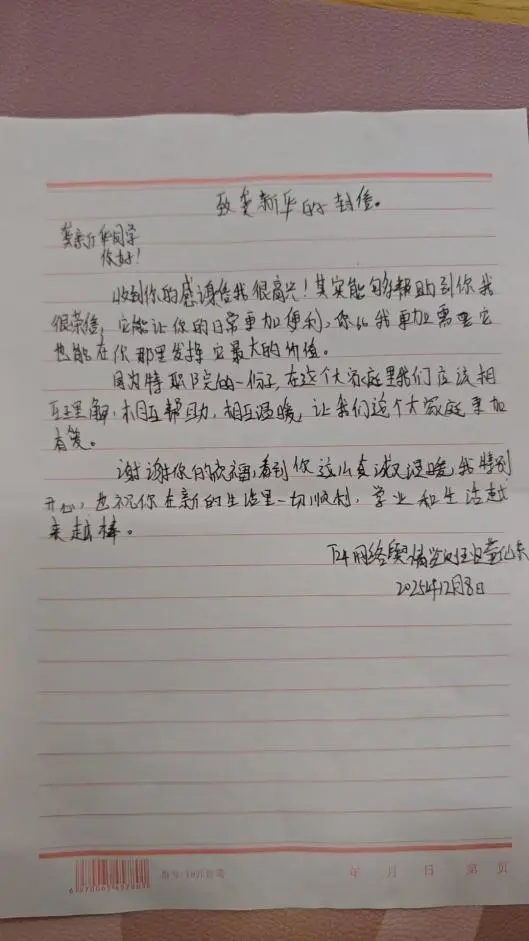 致龚新华的一封信。
龚新华同学
你好！
收到你的感谢信我很高兴！其实能够帮助到你我
很荣幸，它能让你的日常更加便利，你比我更加需要它
也能在你那里发挥它最大的价值。
因为特职院的一份子，在这个大家庭里我们应该相
互理解，相互帮助，相互温暖，让我们这个大家庭更加
有爱。
谢谢你的祝福，看到你这么真诚又温暖，我特别
开心，也祝你在新的生活里一切顺利，学业和生活越
来越棒。
24网络舆情
2025年12月8日
年 月 日 第 页